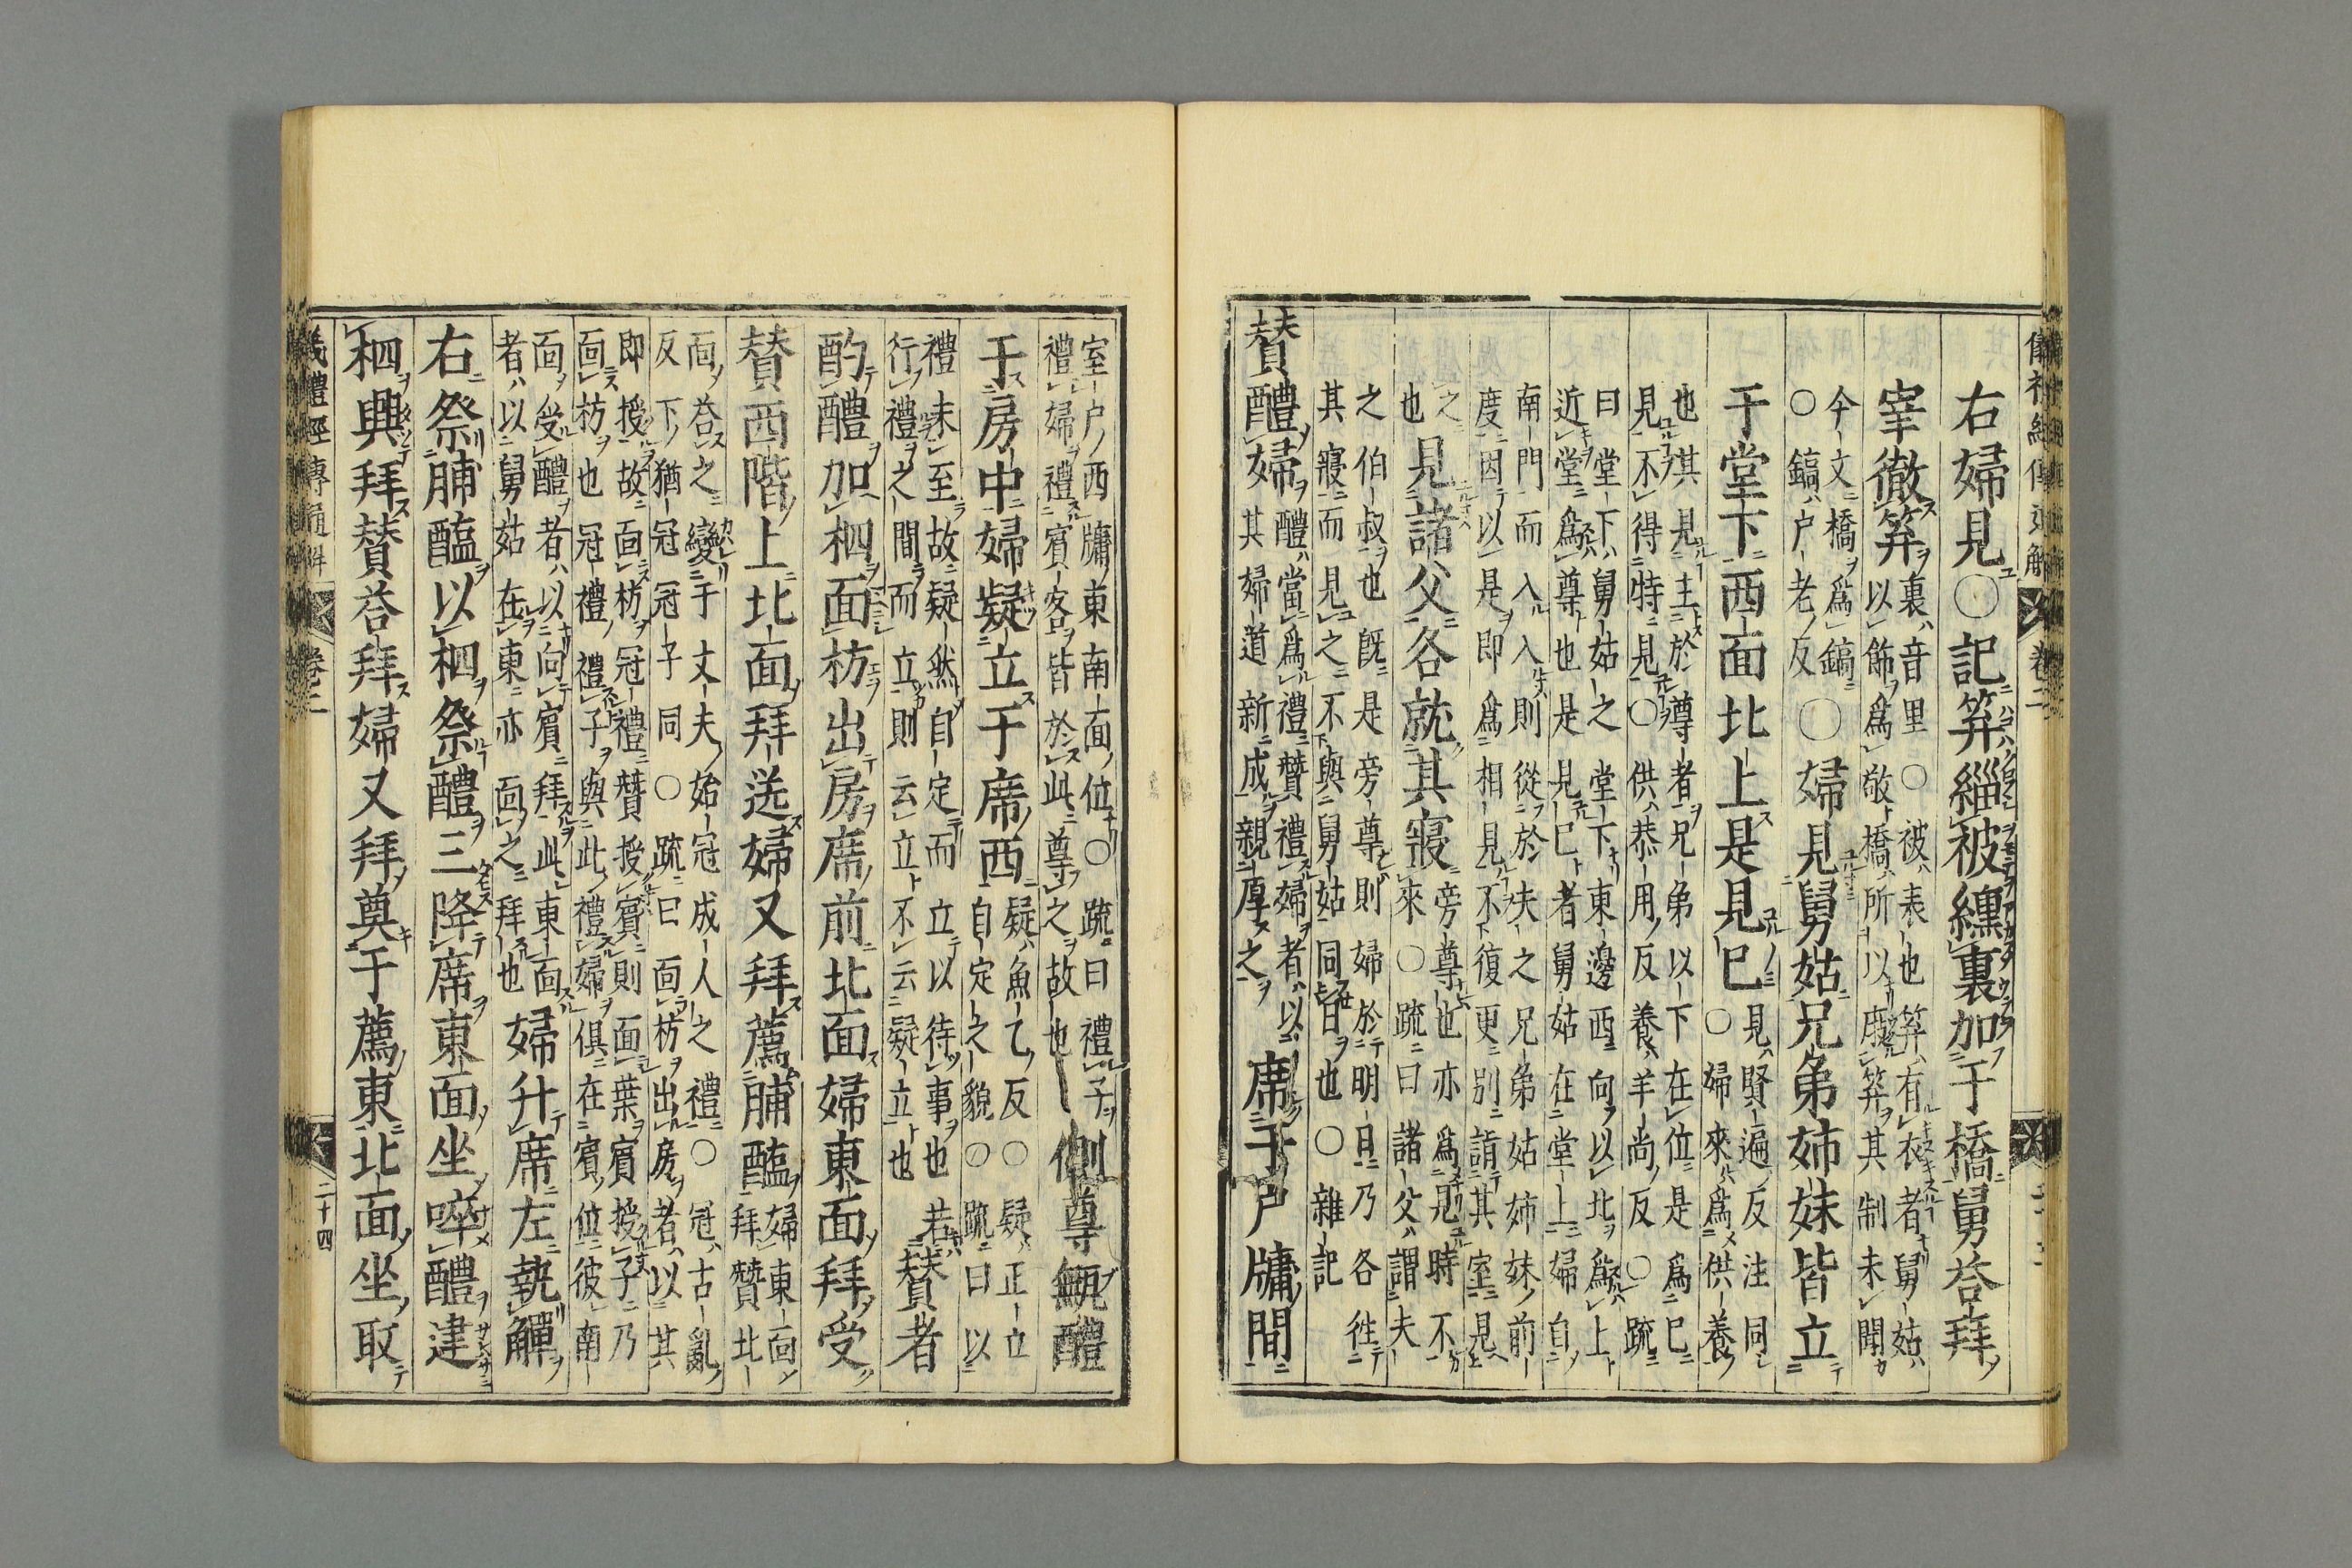 右婦見〇記笲緇被纁裏加于橋舅荅拜
宰徹笲裏音里〇被表也笲有衣者舅姑
以飾爲敬橋所以庪笲其制未聞
今文橋爲鎬
〇鎬户老反〇婦見舅姑兄弟姉妹皆立
于堂下西面北上是見巳見賢遍反注同
〇婦來爲供養
也其見主於尊者兄弟以下在位是爲巳
見不得特見〇供恭用反養羊尚反〇疏
曰堂下舅姑之堂下東邊西向以北爲上
近堂爲尊也是見巳者舅姑在堂上婦自
南門而入入則從於夫之兄弟姑姉妹前
度因以是即爲相見不復更別詣其室見
之
也見諸父各就其寢旁尊也亦爲見時不
來〇疏曰諸父謂夫
之伯叔也旣是旁尊則婦於明日乃各徃
其寢而見之不與舅姑同日也〇雜記
贊醴婦醴當爲禮贊禮婦者以
其婦道新成親厚之席于户牖間
室户西牖東南面位〇疏曰禮子
禮婦禮賓客皆於此尊之故也側尊甒醴
于房中婦疑立于席西疑魚乙反〇疑正立
自定之貌〇疏曰以
禮未至故疑然自定而立以待事也若
行禮之間而立則云立不云疑立也贊者
酌醴加柶面枋出房席前北面婦東面拜受
贊西階上北面拜送婦又拜薦脯醢婦東面
拜贊北
面荅之變于丈夫始冠成人之禮〇冠古亂
反下猶冠冠子同〇疏曰面枋出房者以其
即授故面枋冠禮贊授賓則面葉賓授子乃
面枋也冠禮禮子與此禮婦俱在賓位彼南
面受醴者以向賓拜此東面
者以舅姑在東亦面之拜也婦升席左執觶
右祭脯醢以柶祭醴三降席東面坐啐醴建
柶興拜贊荅拜婦又拜奠于薦東北面坐取
儀禮經傳通解 卷二 二十四